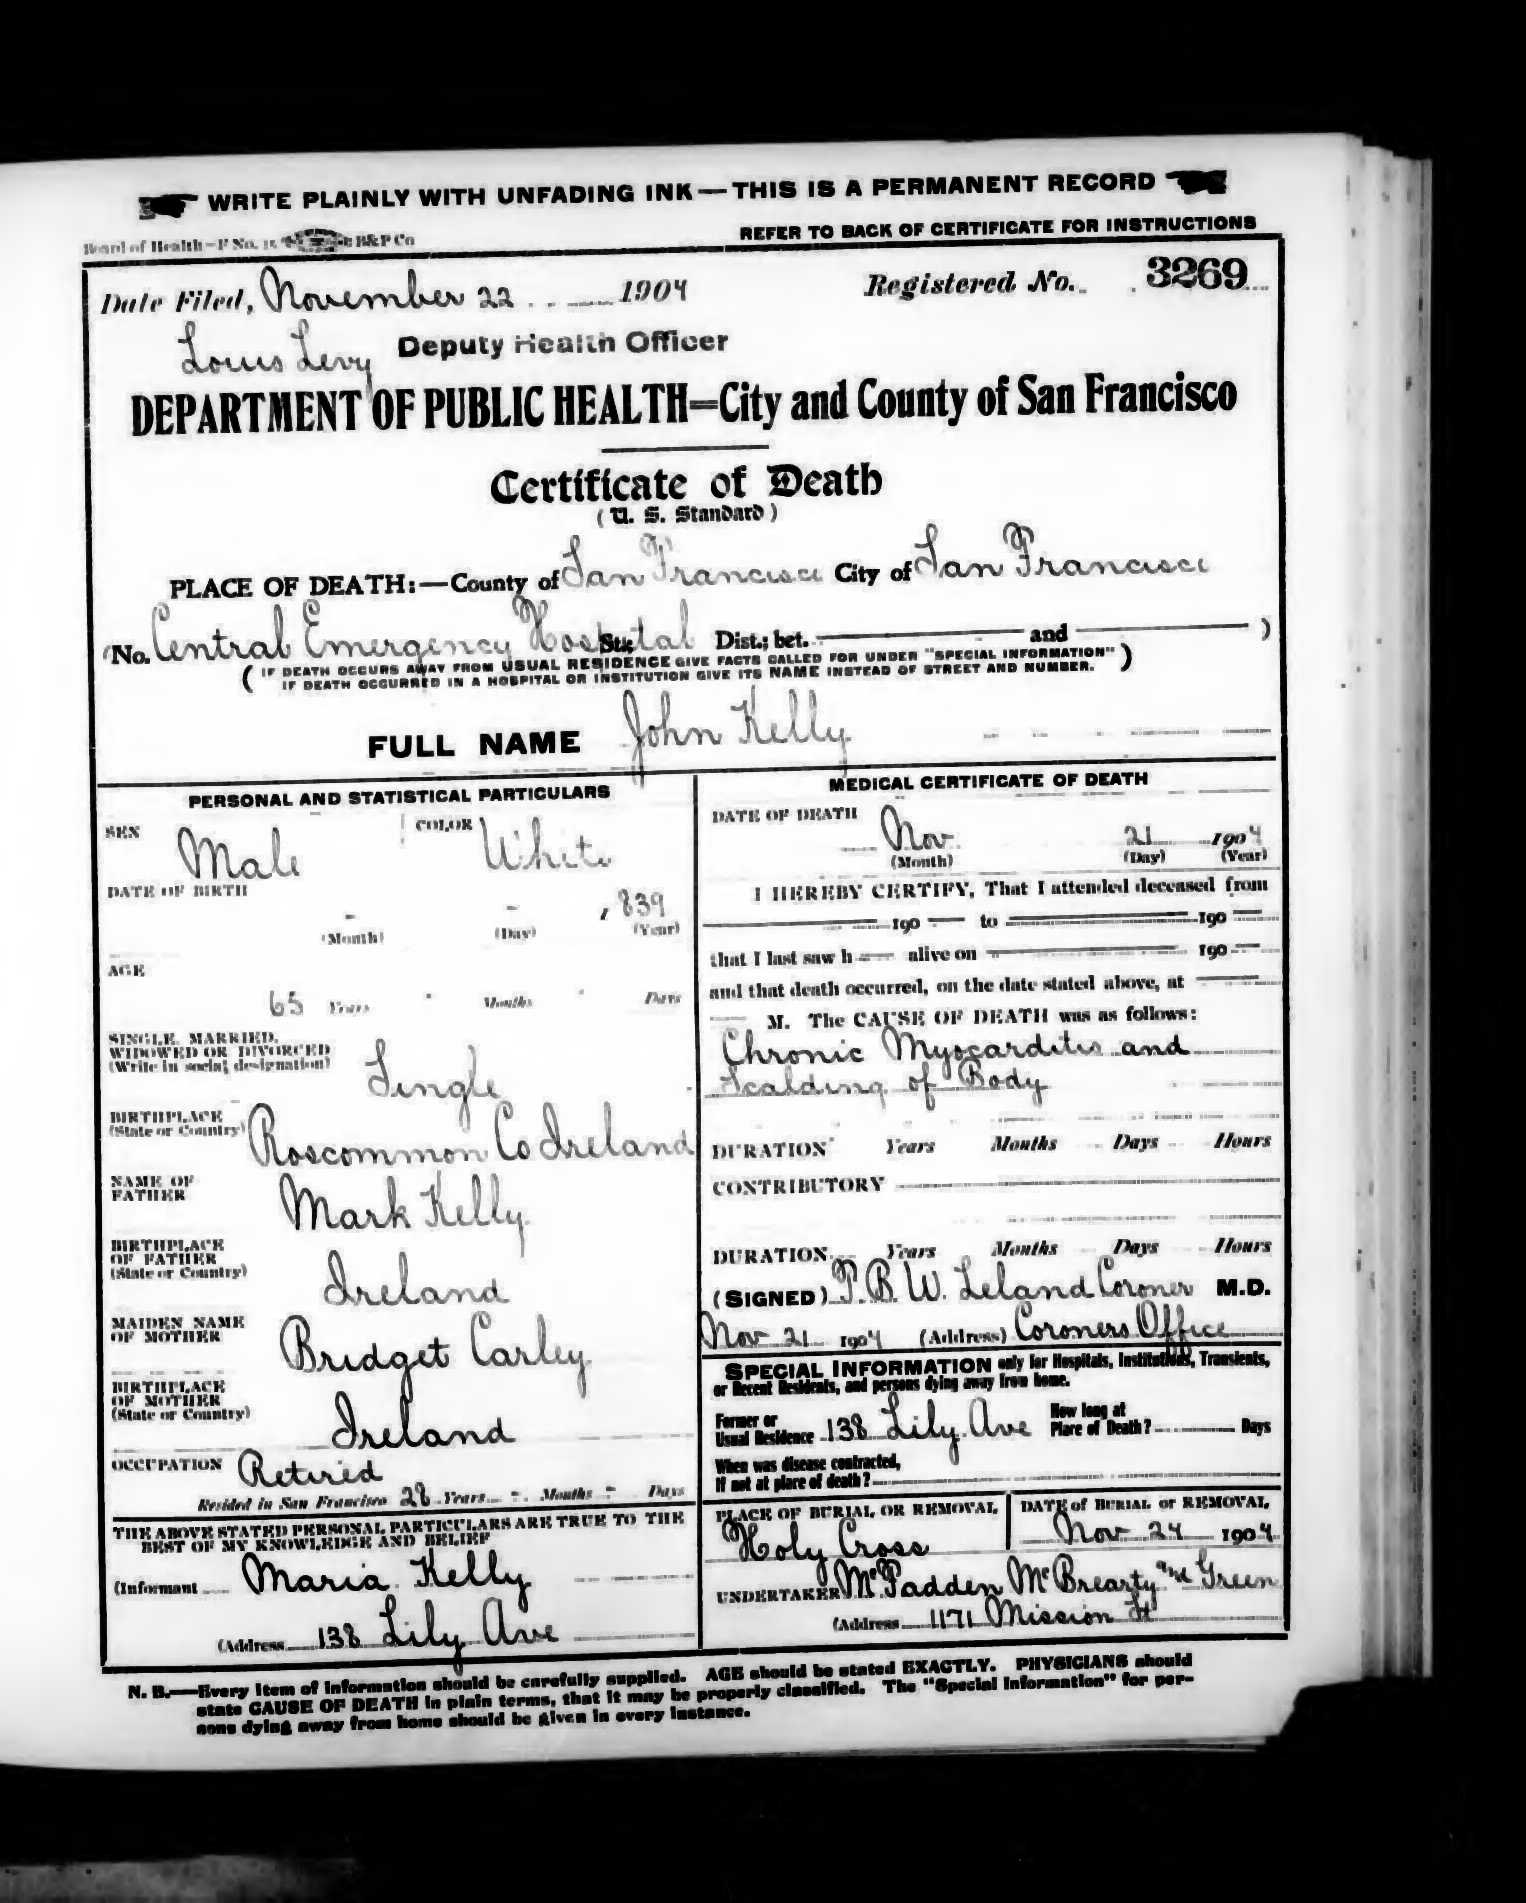 WRITE PLAINLY WITH UNFADING INK — THIS IS A PERMANENT RECORD
Board of Health—F No. 15 B&P Co
REFER TO BACK OF CERTIFICATE FOR INSTRUCTIONS
Date Filed, November 22 1904
Registered No. 3269
Louis Levy Deputy Health Officer
DEPARTMENT OF PUBLIC HEALTH=City and County of San Francisco
Certificate of Death
( U. S. Standard )
PLACE OF DEATH:—County of San Francisco City of San Francisco
(No. Central Emergency Hospital St.; Dist.; bet. and )
( IF DEATH OCCURS AWAY FROM USUAL RESIDENCE GIVE FACTS CALLED FOR UNDER "SPECIAL INFORMATION"
IF DEATH OCCURRED IN A HOSPITAL OR INSTITUTION GIVE ITS NAME INSTEAD OF STREET AND NUMBER. )
FULL NAME John Kelly
PERSONAL AND STATISTICAL PARTICULARS
SEX Male COLOR White
DATE OF BIRTH
- - , 839
(Month) (Day) (Year)
AGE
65 Years Months Days
SINGLE, MARRIED,
WIDOWED OR DIVORCED
(Write in social designation) Single
BIRTHPLACE
(State or Country) Roscommon Co Ireland
NAME OF
FATHER Mark Kelly
BIRTHPLACE
OF FATHER
(State or Country) Ireland
MAIDEN NAME
OF MOTHER Bridget Carley
BIRTHPLACE
OF MOTHER
(State or Country) Ireland
OCCUPATION Retired
Resided in San Francisco 28 Years - Months - Days
THE ABOVE STATED PERSONAL PARTICULARS ARE TRUE TO THE
BEST OF MY KNOWLEDGE AND BELIEF
(Informant Maria Kelly
(Address 138 Lily Ave
MEDICAL CERTIFICATE OF DEATH
DATE OF DEATH
Nov 21 1904
(Month) (Day) (Year)
I HEREBY CERTIFY, That I attended deceased from
190 to 190
that I last saw h alive on 190
and that death occurred, on the date stated above, at
M. The CAUSE OF DEATH was as follows:
Chronic Myocarditis and
Scalding of Body
DURATION Years Months Days Hours
CONTRIBUTORY
DURATION Years Months Days Hours
(SIGNED) T. B. W. Leland Coroner M.D.
Nov 21 1904 (Address) Coroners Office
SPECIAL INFORMATION only for Hospitals, Institutions, Transients,
or Recent Residents, and persons dying away from home.
Former or
Usual Residence 138 Lily Ave
How long at
Place of Death? Days
When was disease contracted,
If not at place of death?
PLACE OF BURIAL OR REMOVAL
Holy Cross
DATE of BURIAL or REMOVAL
Nov 24 1904
UNDERTAKER McFadden McBrearty and Green
(Address 1171 Mission St
N. B.—Every item of information should be carefully supplied. AGE should be stated EXACTLY. PHYSICIANS should
state CAUSE OF DEATH in plain terms, that it may be properly classified. The "Special Information" for per-
sons dying away from home should be given in every instance.